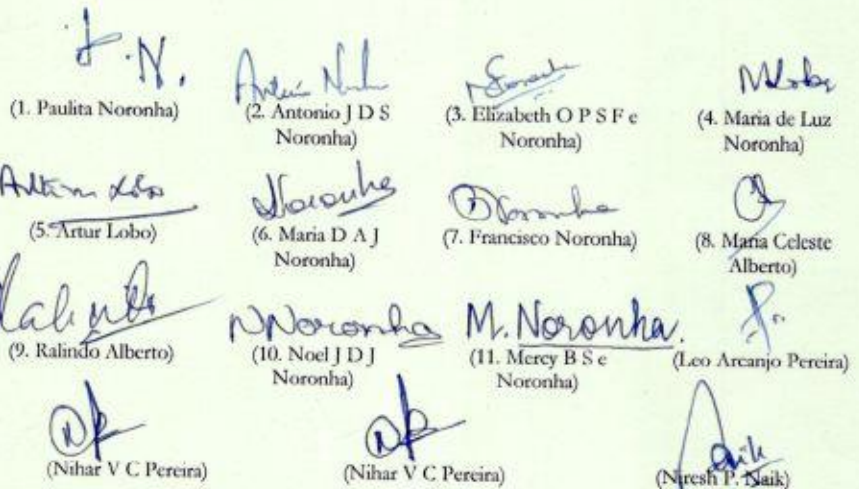 (1. Paulita Noronha)
(2. Antonio J D S
Noronha)
(3. Elizabeth O P S F e
Noronha)
(4. Maria de Luz
Noronha)
Artur Lobo
Noronha
Noronha
(5. Artur Lobo)
(6. Maria D A J
Noronha)
(7. Francisco Noronha)
(8. Maria Celeste
Alberto)
NNoronha
M. Noronha.
(9. Ralindo Alberto)
(10. Noel J D J
Noronha)
(11. Mercy B S e
Noronha)
(Leo Arcanjo Pereira)
(Nihar V C Pereira)
(Nihar V C Pereira)
Naik
(Niresh P. Naik)